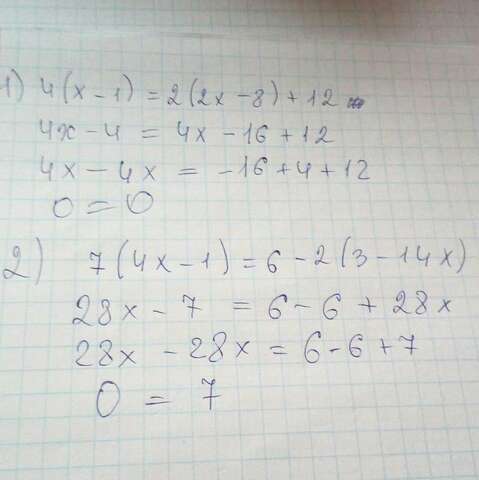 1) 4(x-1) = 2(2x-8)+12
4x-4 = 4x-16+12
4x-4x = -16+4+12
0 = 0
2) 7(4x-1) = 6-2(3-14x)
28x-7 = 6-6+28x
28x-28x = 6-6+7
0 = 7